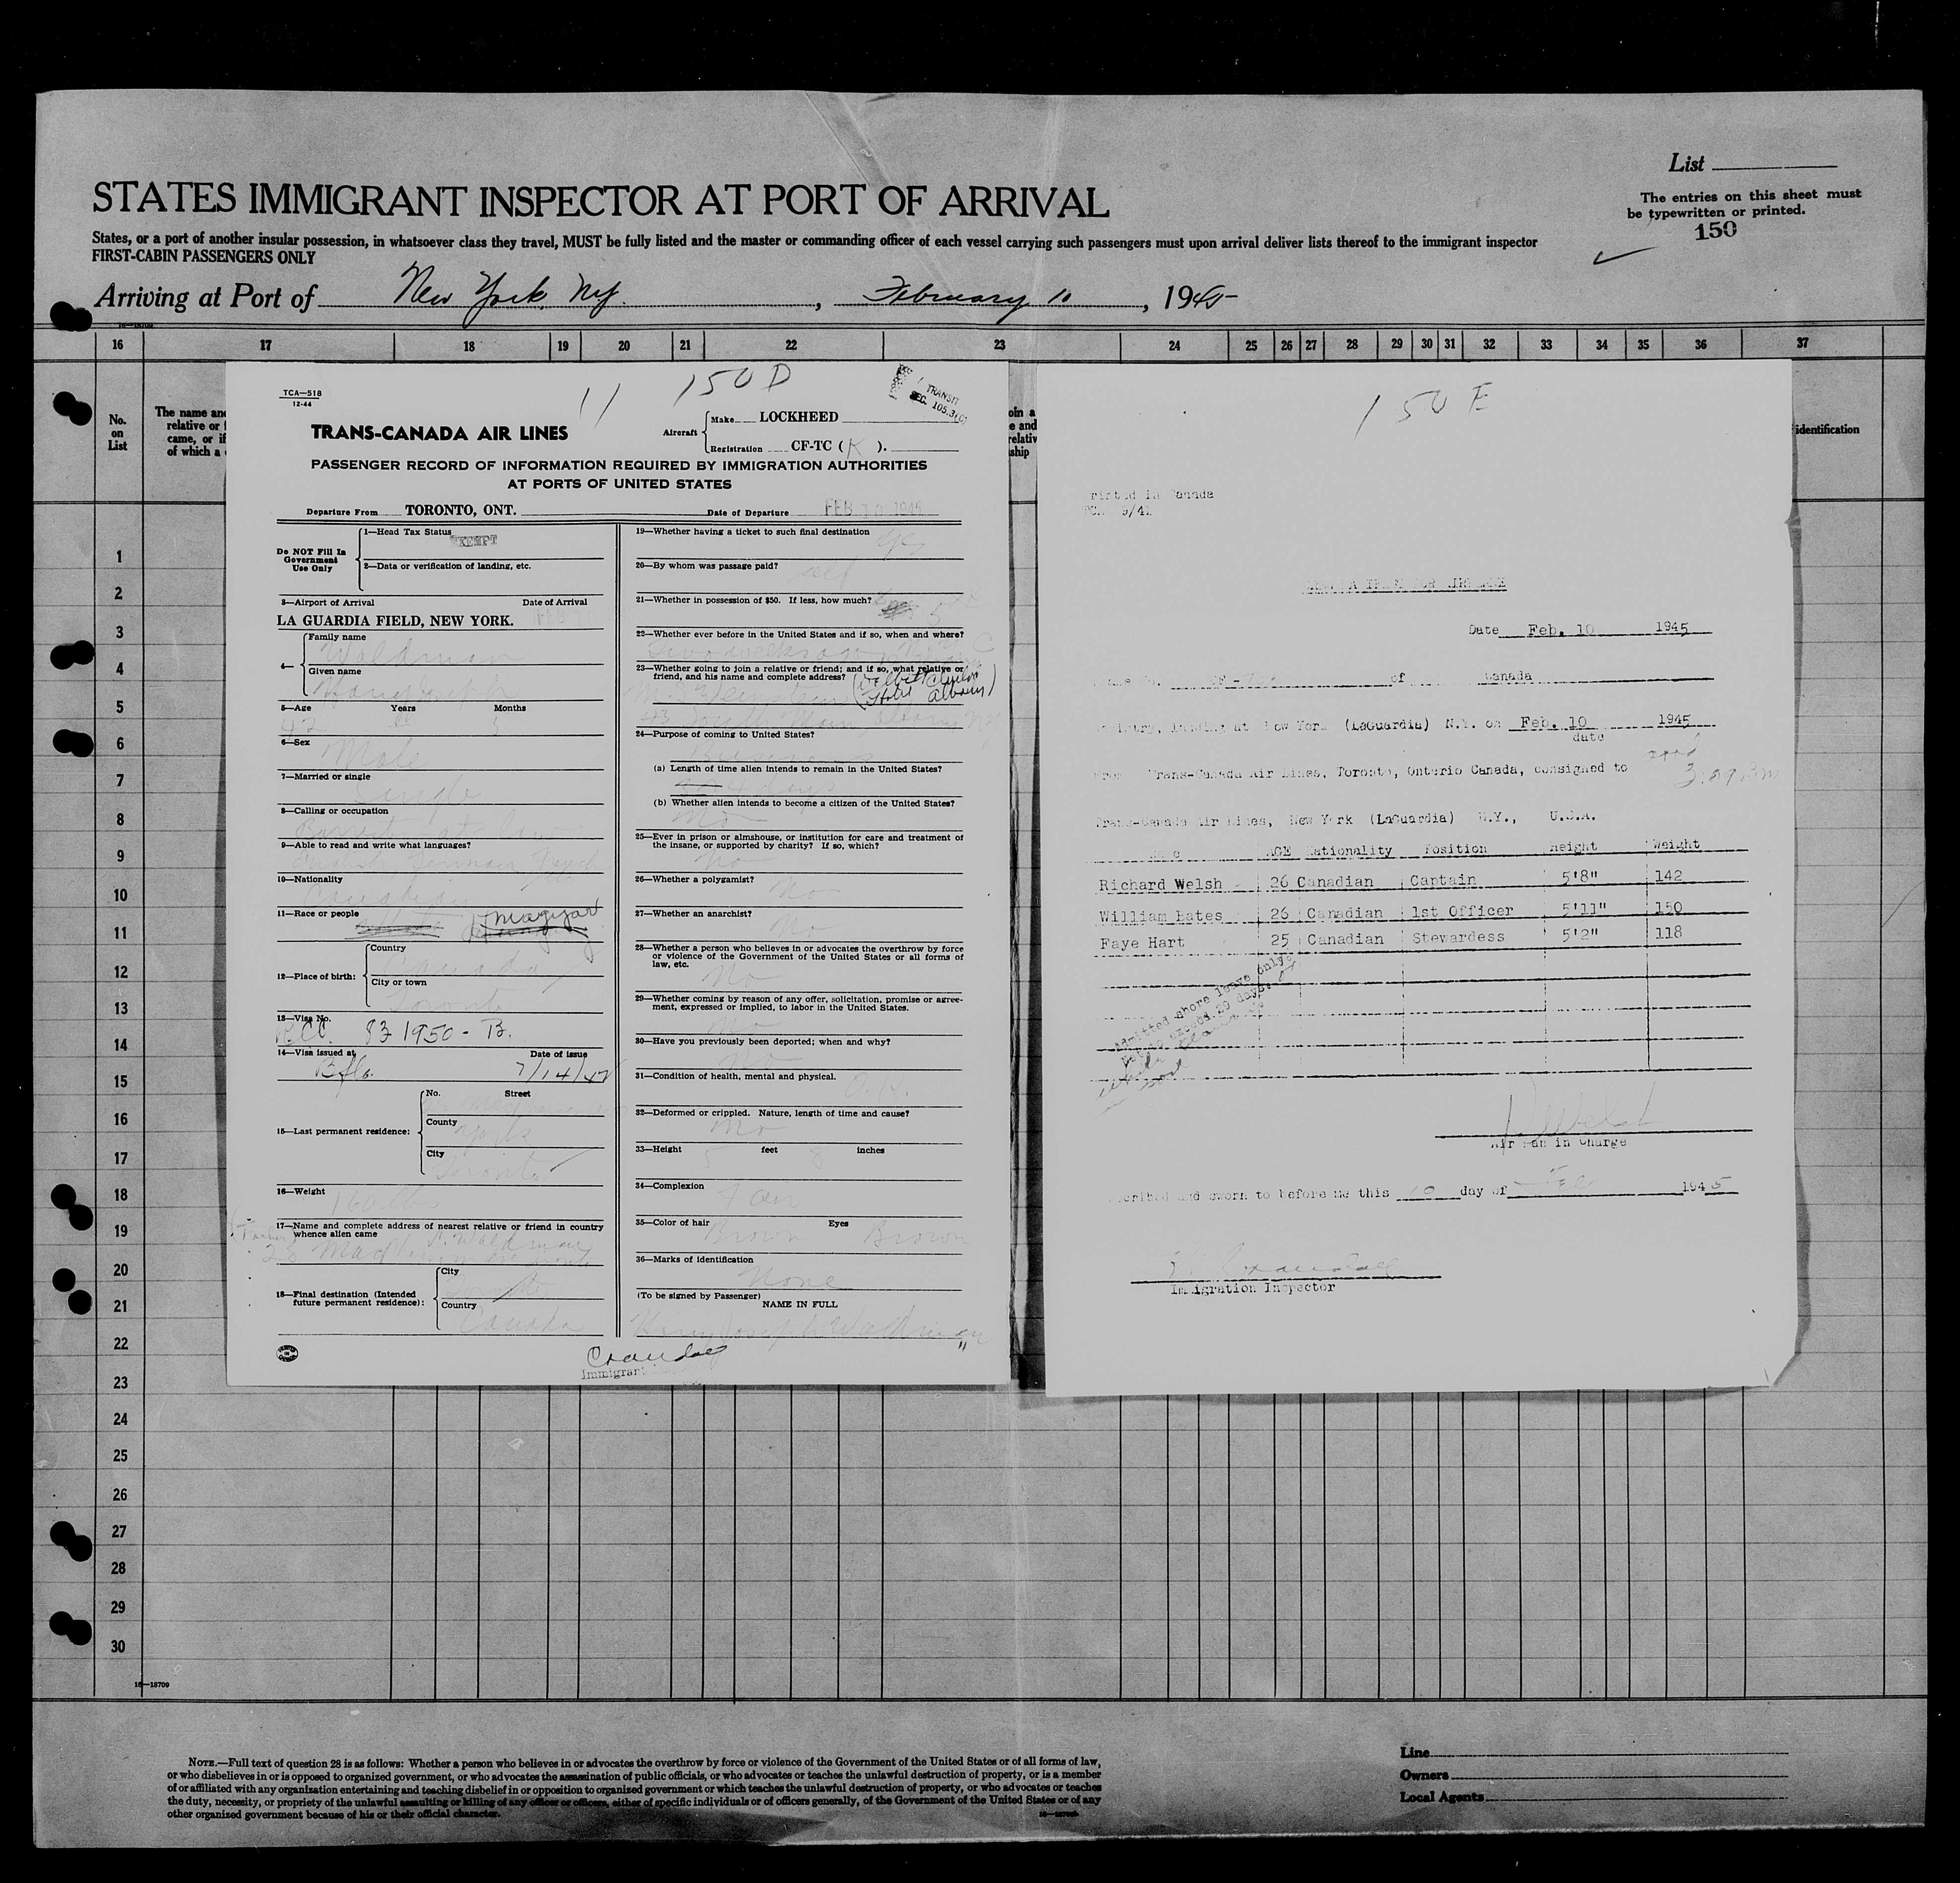 List
STATES IMMIGRANT INSPECTOR AT PORT OF ARRIVAL
The entries on this sheet must
be typewritten or printed.
150
States, or a port of another insular possession, in whatsoever class they travel, MUST be fully listed and the master or commanding officer of each vessel carrying such passengers must upon arrival deliver lists thereof to the immigrant inspector
FIRST-CABIN PASSENGERS ONLY
Arriving at Port of New York, N.Y. , February 10 , 1945
16 17 18 19 20 21 22 23 24 25 26 27 28 29 30 31 32 33 34 35 36 37
No.
on
List
The name and
relative or
came, or if
of which a
identification
1
2
3
4
5
6
7
8
9
10
11
12
13
14
15
16
17
18
19
20
21
22
23
24
25
26
27
28
29
30
16—18709
11 150 D
TRANSIT
SEC. 105.3(C)
TCA—518
12-44
TRANS-CANADA AIR LINES
Aircraft
Make LOCKHEED
Registration CF-TC ( K ).
PASSENGER RECORD OF INFORMATION REQUIRED BY IMMIGRATION AUTHORITIES
AT PORTS OF UNITED STATES
Departure From TORONTO, ONT. Date of Departure FEB 10 1945
Do NOT Fill In
Government
Use Only
1—Head Tax Status
EXEMPT
2—Data or verification of landing, etc.
3—Airport of Arrival Date of Arrival
LA GUARDIA FIELD, NEW YORK. FEB
4—
Family name
Waldman
Given name
Harry Joseph
5—Age Years Months
42 5
6—Sex
Male
7—Married or single
Single
8—Calling or occupation
Barrister at law
9—Able to read and write what languages?
English German French
10—Nationality
Canadian
11—Race or people
Magyar
12—Place of birth:
Country
Canada
City or town
Toronto
13—Visa No.
R.C.C. 83 1950 - B.
14—Visa issued at Date of issue
Bflo. 7/14/42
15—Last permanent residence:
No. Street
County
York
City
Toronto
16—Weight
160 lbs
17—Name and complete address of nearest relative or friend in country
whence alien came
(Father) Waldman
18—Final destination (Intended
future permanent residence):
City
Country
Canada
19—Whether having a ticket to such final destination
yes
20—By whom was passage paid?
self
21—Whether in possession of $50. If less, how much?
22—Whether ever before in the United States and if so, when and where?
Two weeks ago
23—Whether going to join a relative or friend; and if so, what relative or
friend, and his name and complete address?
Hotel Albany
24—Purpose of coming to United States?
(a) Length of time alien intends to remain in the United States?
days
(b) Whether alien intends to become a citizen of the United States?
No
25—Ever in prison or almshouse, or institution for care and treatment of
the insane, or supported by charity? If so, which?
No
26—Whether a polygamist?
No
27—Whether an anarchist?
No
28—Whether a person who believes in or advocates the overthrow by force
or violence of the Government of the United States or all forms of
law, etc.
No
29—Whether coming by reason of any offer, solicitation, promise or agree-
ment, expressed or implied, to labor in the United States.
No
30—Have you previously been deported; when and why?
No
31—Condition of health, mental and physical.
O.K.
32—Deformed or crippled. Nature, length of time and cause?
No
33—Height 5 feet 8 inches
34—Complexion
Fair
35—Color of hair Eyes
Brown Brown
36—Marks of identification
None
(To be signed by Passenger)
NAME IN FULL
Harry Joseph Waldman
Crandall
Immigrant
150 E
Printed in Canada
Date Feb. 10 1945
of Canada
landing at New York (LaGuardia) N.Y. on Feb. 10 1945
date
From Trans-Canada Air Lines, Toronto, Ontario Canada, consigned to
Trans-Canada Air Lines, New York (LaGuardia) N.Y., U.S.A.
AGE Nationality Position Height Weight
Richard Welsh 26 Canadian Captain 5'8" 142
William Bates 26 Canadian 1st Officer 5'11" 150
Faye Hart 25 Canadian Stewardess 5'2" 118
Admitted shore leave only
not to exceed 29 days
R Welsh
Air Man in Charge
Subscribed and sworn to before me this 10 day of Feb 1945
Crandall
Immigration Inspector
NOTE.—Full text of question 28 is as follows: Whether a person who believes in or advocates the overthrow by force or violence of the Government of the United States or of all forms of law,
or who disbelieves in or is opposed to organized government, or who advocates the assassination of public officials, or who advocates or teaches the unlawful destruction of property, or is a member
of or affiliated with any organization entertaining and teaching disbelief in or opposition to organized government or which teaches the unlawful destruction of property, or who advocates or teaches
the duty, necessity, or propriety of the unlawful assaulting or killing of any officer or officers, either of specific individuals or of officers generally, of the Government of the United States or of any
other organized government because of his or their official character.
Line
Owners
Local Agents